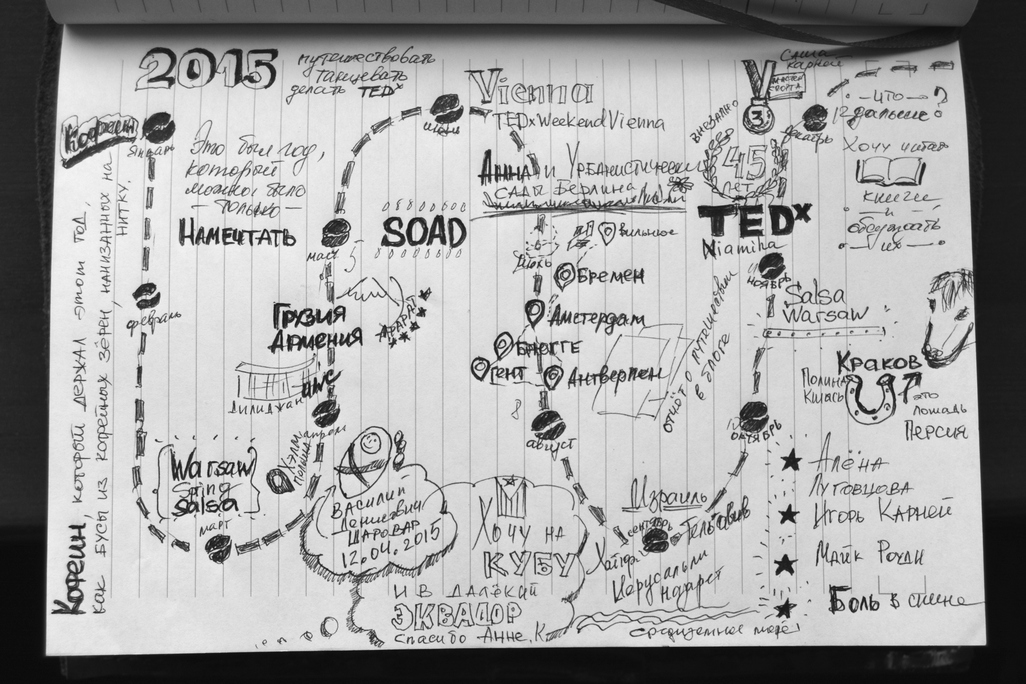 2015
путешествовать
танцевать
делать TEDx
Кофеин
январь
Это был год,
который
можно было
— только —
Намечтать
февраль
Кофеин, который держал этот год,
как бусы из кофейных зёрен, нанизанных на
нитку.
Warsaw
Spring
Salsa
март
Хэлм
Польша
апрель
Грузия
Армения
Арарат
Дилиджан
UWC
май
5
SOAD
июнь
Василий
Денисович
Шаровар
12.04.2015
Vienna
TEDxWeekendVienna
Анна и Урбанистические
сады Берлина
6
Июль
Вильнюс
Бремен
Амстердам
Брюгге
Гент
Антверпен
8
август
отчёт о путешествии
в блоге
Хочу на
КУБУ
и в далёкий
ЭКВАДОР
Спасибо Анне К.
Израиль
сентябрь
Хайфа
Тель-Авив
Иерусалим
средиземное море
октябрь
Salsa
Warsaw
Краков
это
лошадь
Персия
Алёна
Пуговцова
Игорь Карней
Майк Роуди
Боль в спине
ноябрь
TEDx
Niamiha
внезапно
45
лет
3
мастер
спорта
декабрь
— что —
дальше?
12
Хочу читать
книги
и
обсуждать
— их —